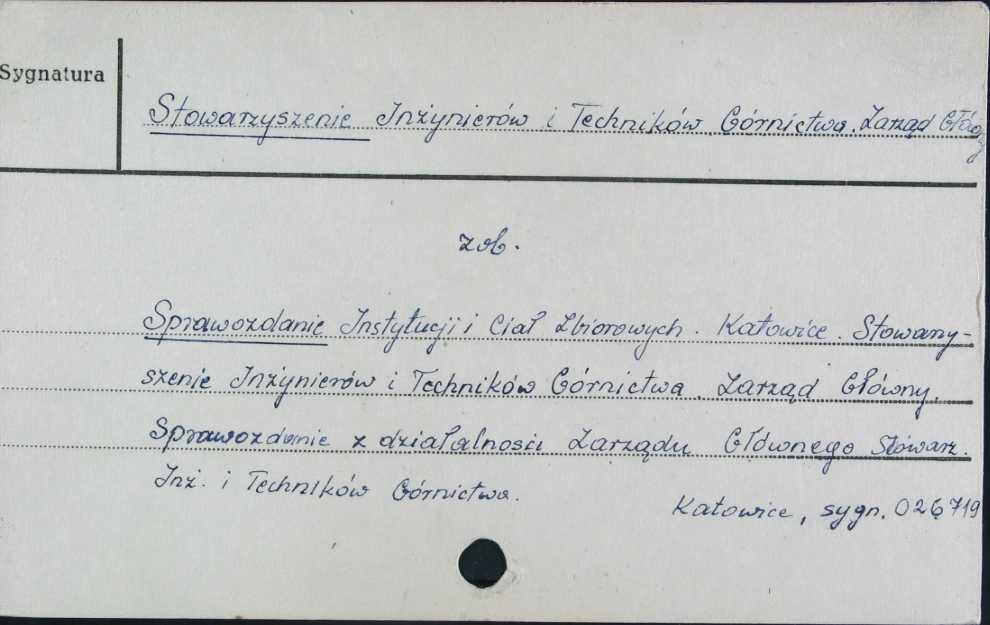 Sygnatura
Stowarzyszenie Inżynierów i Techników Górnictwa. Zarząd Główny
zob.
Sprawozdanie Instytucji i Ciał Zbiorowych. Katowice. Stowarzy-
szenie Inżynierów i Techników Górnictwa. Zarząd Główny.
Sprawozdanie z działalności Zarządu Głównego Stowarz.
Inż. i Techników Górnictwa.
Katowice, sygn. 026719